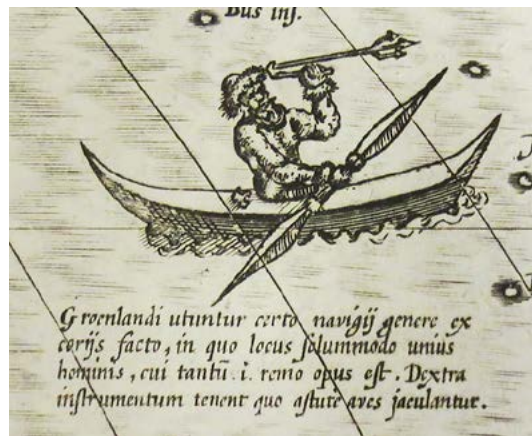 Bus ins.
Groenlandi utuntur certo navigij genere ex
corijs facto, in quo locus solummodo unius
hominis, cui tantũ .i. remo opus est. Dextra
instrumentum tenent quo astute aves jaculantur.